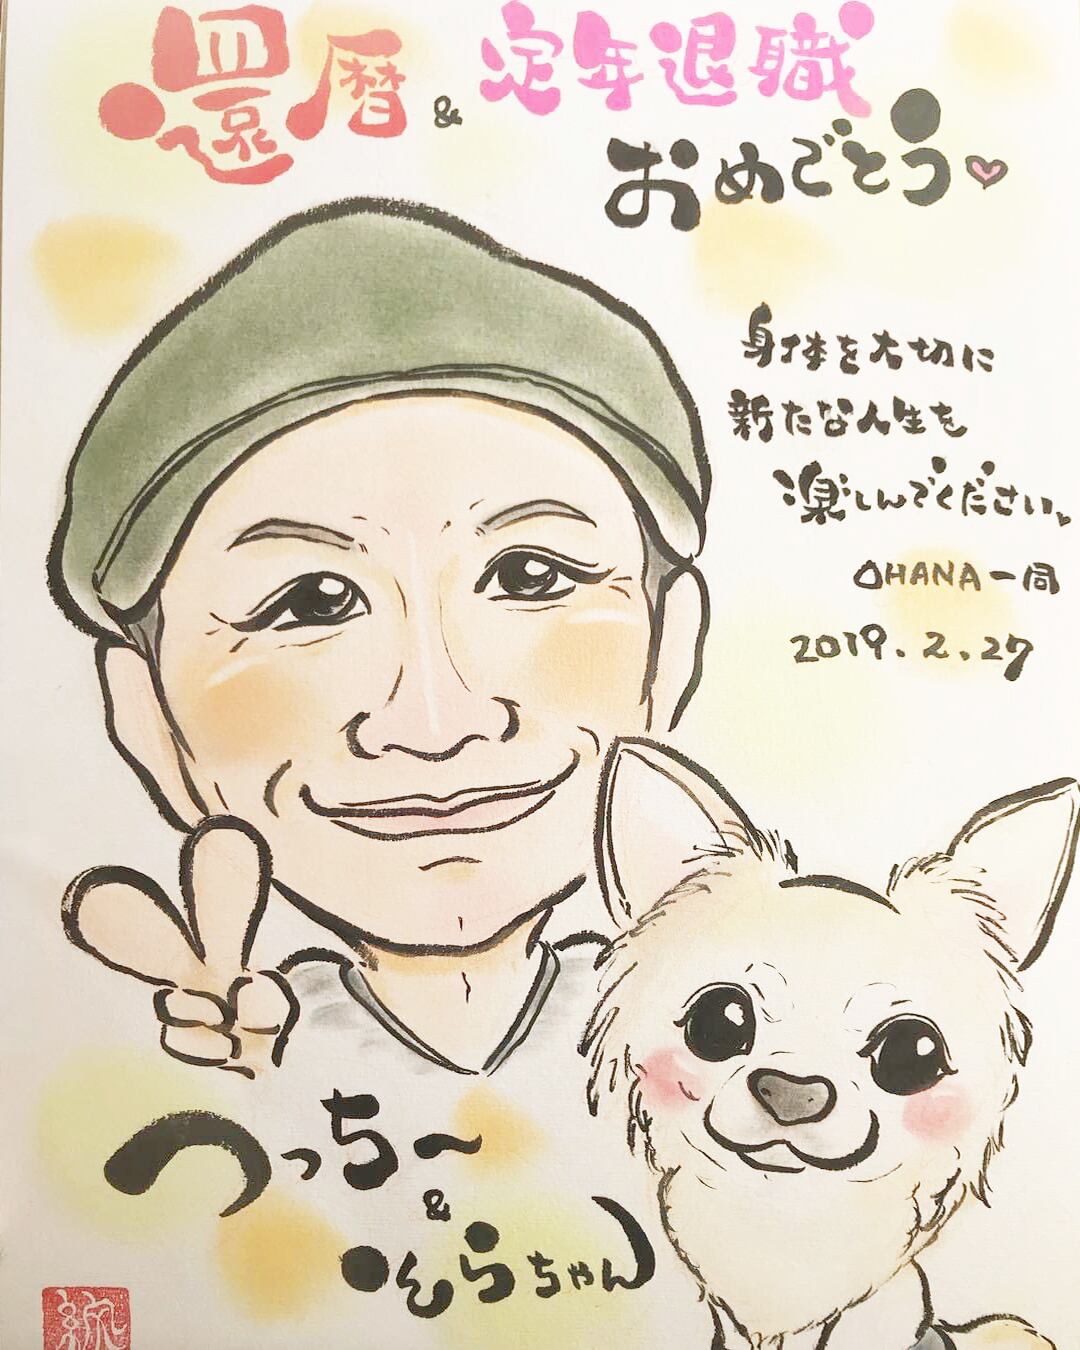 還暦&定年退職
おめでとう♡
身体を大切に
新たな人生を
楽しんでください。
OHANA一同
2019.2.27
つっちー
&
そらちゃん